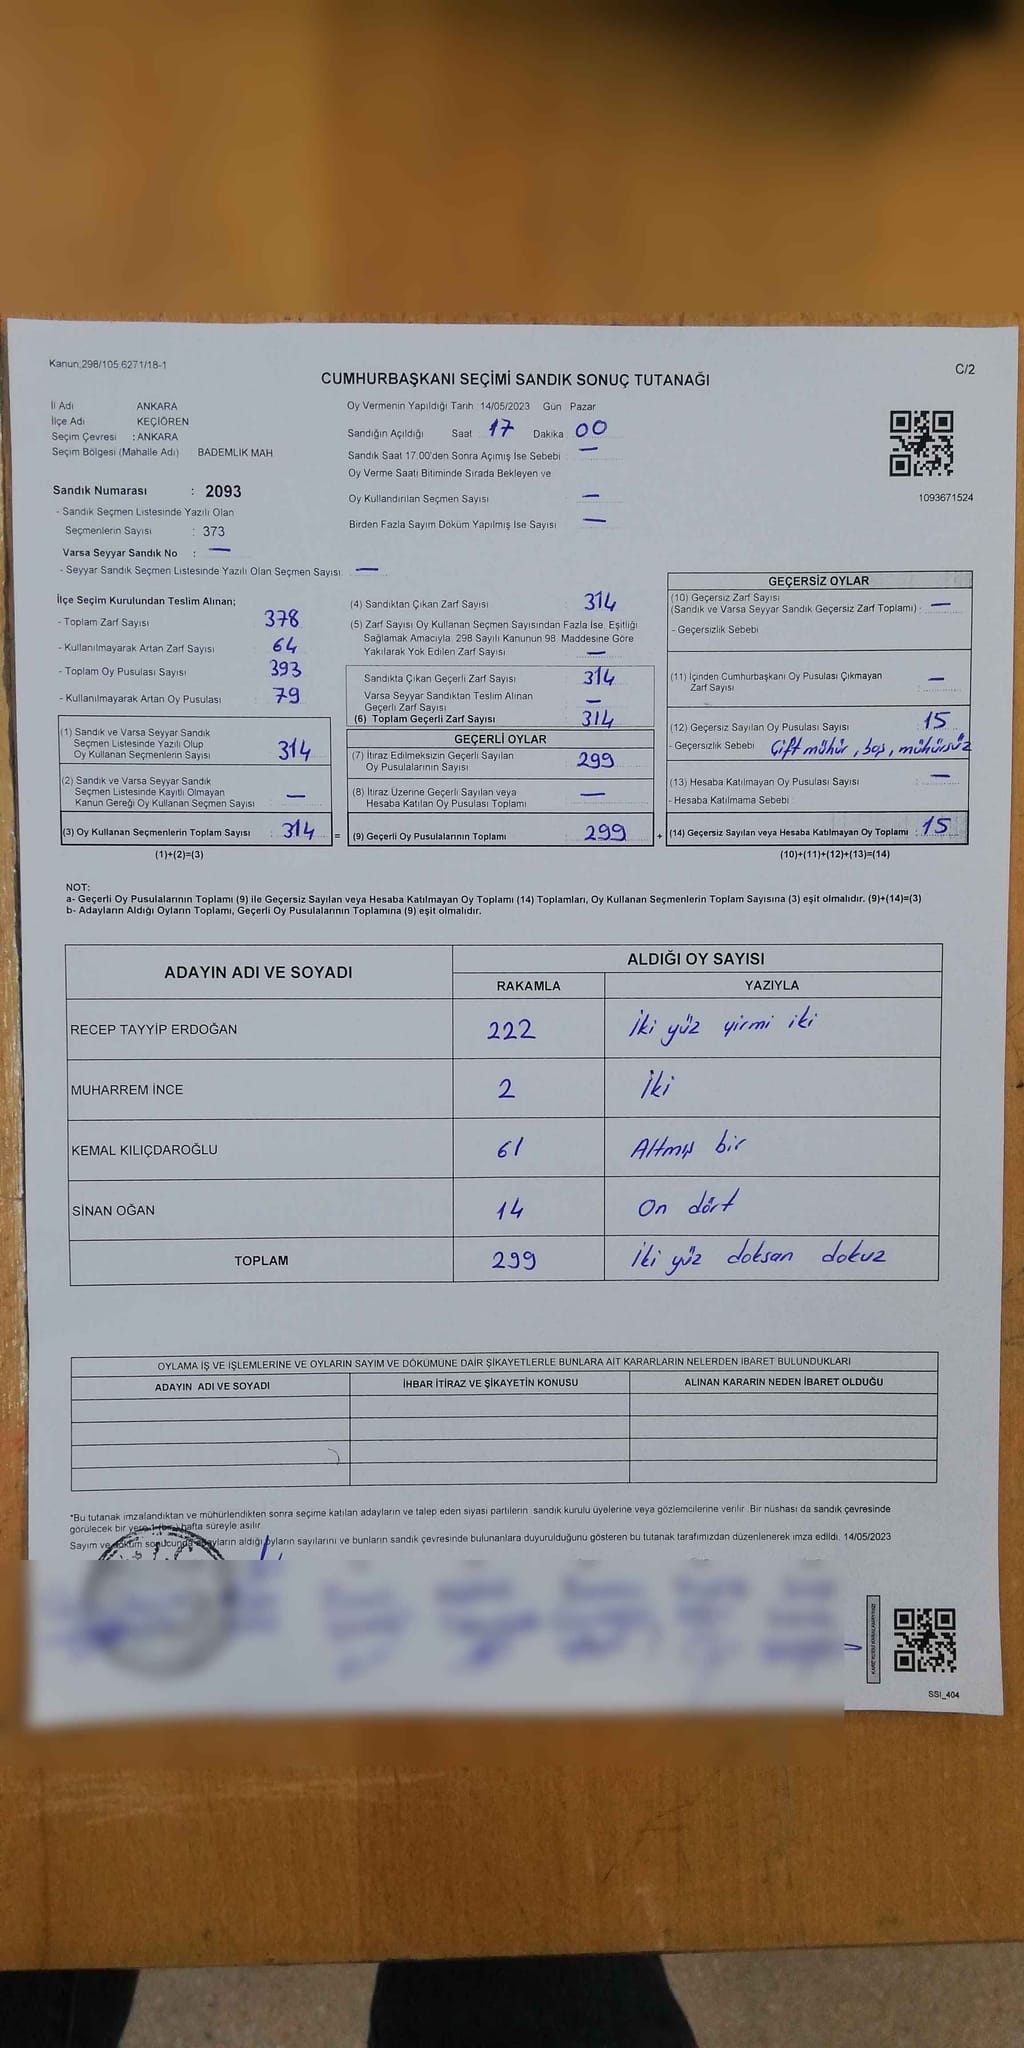 Kanun:298/105.6271/18-1
C/2
CUMHURBAŞKANI SEÇİMİ SANDIK SONUÇ TUTANAĞI
İl Adı ANKARA
İlçe Adı KEÇİÖREN
Seçim Çevresi : ANKARA
Seçim Bölgesi (Mahalle Adı) BADEMLİK MAH
Sandık Numarası : 2093
- Sandık Seçmen Listesinde Yazılı Olan
Seçmenlerin Sayısı : 373
Varsa Seyyar Sandık No : —
- Seyyar Sandık Seçmen Listesinde Yazılı Olan Seçmen Sayısı: —
Oy Vermenin Yapıldığı Tarih 14/05/2023 Gün Pazar
Sandığın Açıldığı Saat 17 Dakika 00
Sandık Saat 17:00'den Sonra Açımış İse Sebebi —
Oy Verme Saati Bitiminde Sırada Bekleyen ve
Oy Kullandırılan Seçmen Sayısı —
Birden Fazla Sayım Döküm Yapılmış İse Sayısı —
1093671524
İlçe Seçim Kurulundan Teslim Alınan;
- Toplam Zarf Sayısı 378
- Kullanılmayarak Artan Zarf Sayısı 64
- Toplam Oy Pusulası Sayısı 393
- Kullanılmayarak Artan Oy Pusulası 79
(1) Sandık ve Varsa Seyyar Sandık
Seçmen Listesinde Yazılı Olup
Oy Kullanan Seçmenlerin Sayısı 314
(2) Sandık ve Varsa Seyyar Sandık
Seçmen Listesinde Kayıtlı Olmayan
Kanun Gereği Oy Kullanan Seçmen Sayısı —
(3) Oy Kullanan Seçmenlerin Toplam Sayısı : 314 =
(1)+(2)=(3)
(4) Sandıktan Çıkan Zarf Sayısı 314
(5) Zarf Sayısı Oy Kullanan Seçmen Sayısından Fazla İse, Eşitliği
Sağlamak Amacıyla, 298 Sayılı Kanunun 98. Maddesine Göre
Yakılarak Yok Edilen Zarf Sayısı —
Sandıkta Çıkan Geçerli Zarf Sayısı 314
Varsa Seyyar Sandıktan Teslim Alınan
Geçerli Zarf Sayısı —
(6) Toplam Geçerli Zarf Sayısı 314
GEÇERLİ OYLAR
(7) İtiraz Edilmeksizin Geçerli Sayılan
Oy Pusulalarının Sayısı 299
(8) İtiraz Üzerine Geçerli Sayılan veya
Hesaba Katılan Oy Pusulası Toplamı —
(9) Geçerli Oy Pusulalarının Toplamı 299 +
GEÇERSİZ OYLAR
(10) Geçersiz Zarf Sayısı
(Sandık ve Varsa Seyyar Sandık Geçersiz Zarf Toplamı) : —
- Geçersizlik Sebebi
(11) İçinden Cumhurbaşkanı Oy Pusulası Çıkmayan
Zarf Sayısı : —
(12) Geçersiz Sayılan Oy Pusulası Sayısı 15
- Geçersizlik Sebebi Çift mühür, boş, mühürsüz
(13) Hesaba Katılmayan Oy Pusulası Sayısı —
- Hesaba Katılmama Sebebi
(14) Geçersiz Sayılan veya Hesaba Katılmayan Oy Toplamı : 15
(10)+(11)+(12)+(13)=(14)
NOT:
a- Geçerli Oy Pusulalarının Toplamı (9) ile Geçersiz Sayılan veya Hesaba Katılmayan Oy Toplamı (14) Toplamları, Oy Kullanan Seçmenlerin Toplam Sayısına (3) eşit olmalıdır. (9)+(14)=(3)
b- Adayların Aldığı Oyların Toplamı, Geçerli Oy Pusulalarının Toplamına (9) eşit olmalıdır.
ADAYIN ADI VE SOYADI
ALDIĞI OY SAYISI
RAKAMLA YAZIYLA
RECEP TAYYİP ERDOĞAN 222 İki yüz yirmi iki
MUHARREM İNCE 2 İki
KEMAL KILIÇDAROĞLU 61 Altmış bir
SİNAN OĞAN 14 On dört
TOPLAM 299 İki yüz doksan dokuz
OYLAMA İŞ VE İŞLEMLERİNE VE OYLARIN SAYIM VE DÖKÜMÜNE DAİR ŞİKAYETLERLE BUNLARA AİT KARARLARIN NELERDEN İBARET BULUNDUKLARI
ADAYIN ADI VE SOYADI İHBAR İTİRAZ VE ŞİKAYETİN KONUSU ALINAN KARARIN NEDEN İBARET OLDUĞU
*Bu tutanak imzalandıktan ve mühürlendikten sonra seçime katılan adayların ve talep eden siyasi partilerin sandık kurulu üyelerine veya gözlemcilerine verilir. Bir nüshası da sandık çevresinde
görülecek bir yere 1 (bir) hafta süreyle asılır.
Sayım ve döküm sonucunda adayların aldığı oyların sayılarını ve bunların sandık çevresinde bulunanlara duyurulduğunu gösteren bu tutanak tarafımızdan düzenlenerek imza edildi. 14/05/2023
SSI_404